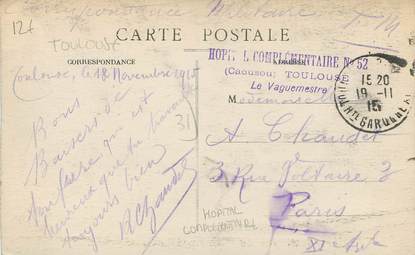 12t
TOULOUSE
CARTE POSTALE
CORRESPONDANCE
ADRESSE
HOPITAL COMPLÉMENTAIRE No 52
(Caousou) TOULOUSE
Le Vaguemestre
15 20
19 -11
15
Toulouse, le 18 Novembre 1915
Bons
Baisers de
ton frère qui est
heureux que tu
toujours bien
AChaudet
31
Mademoiselle
A Chaudet
3 Rue Voltaire 3
Paris
XI
HOPITAL
COMPLEMENTAIRE